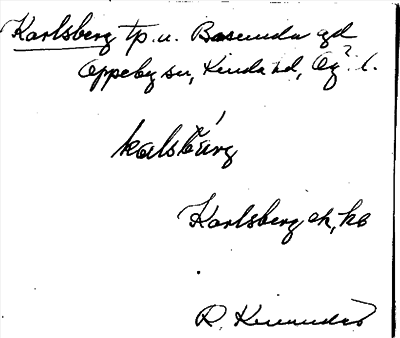 Karlsberg tp. u. Basunda gd
Oppeby sn, Kinda hd, Ög. l.
kalsbärg
Karlsberg ek, kb
R.